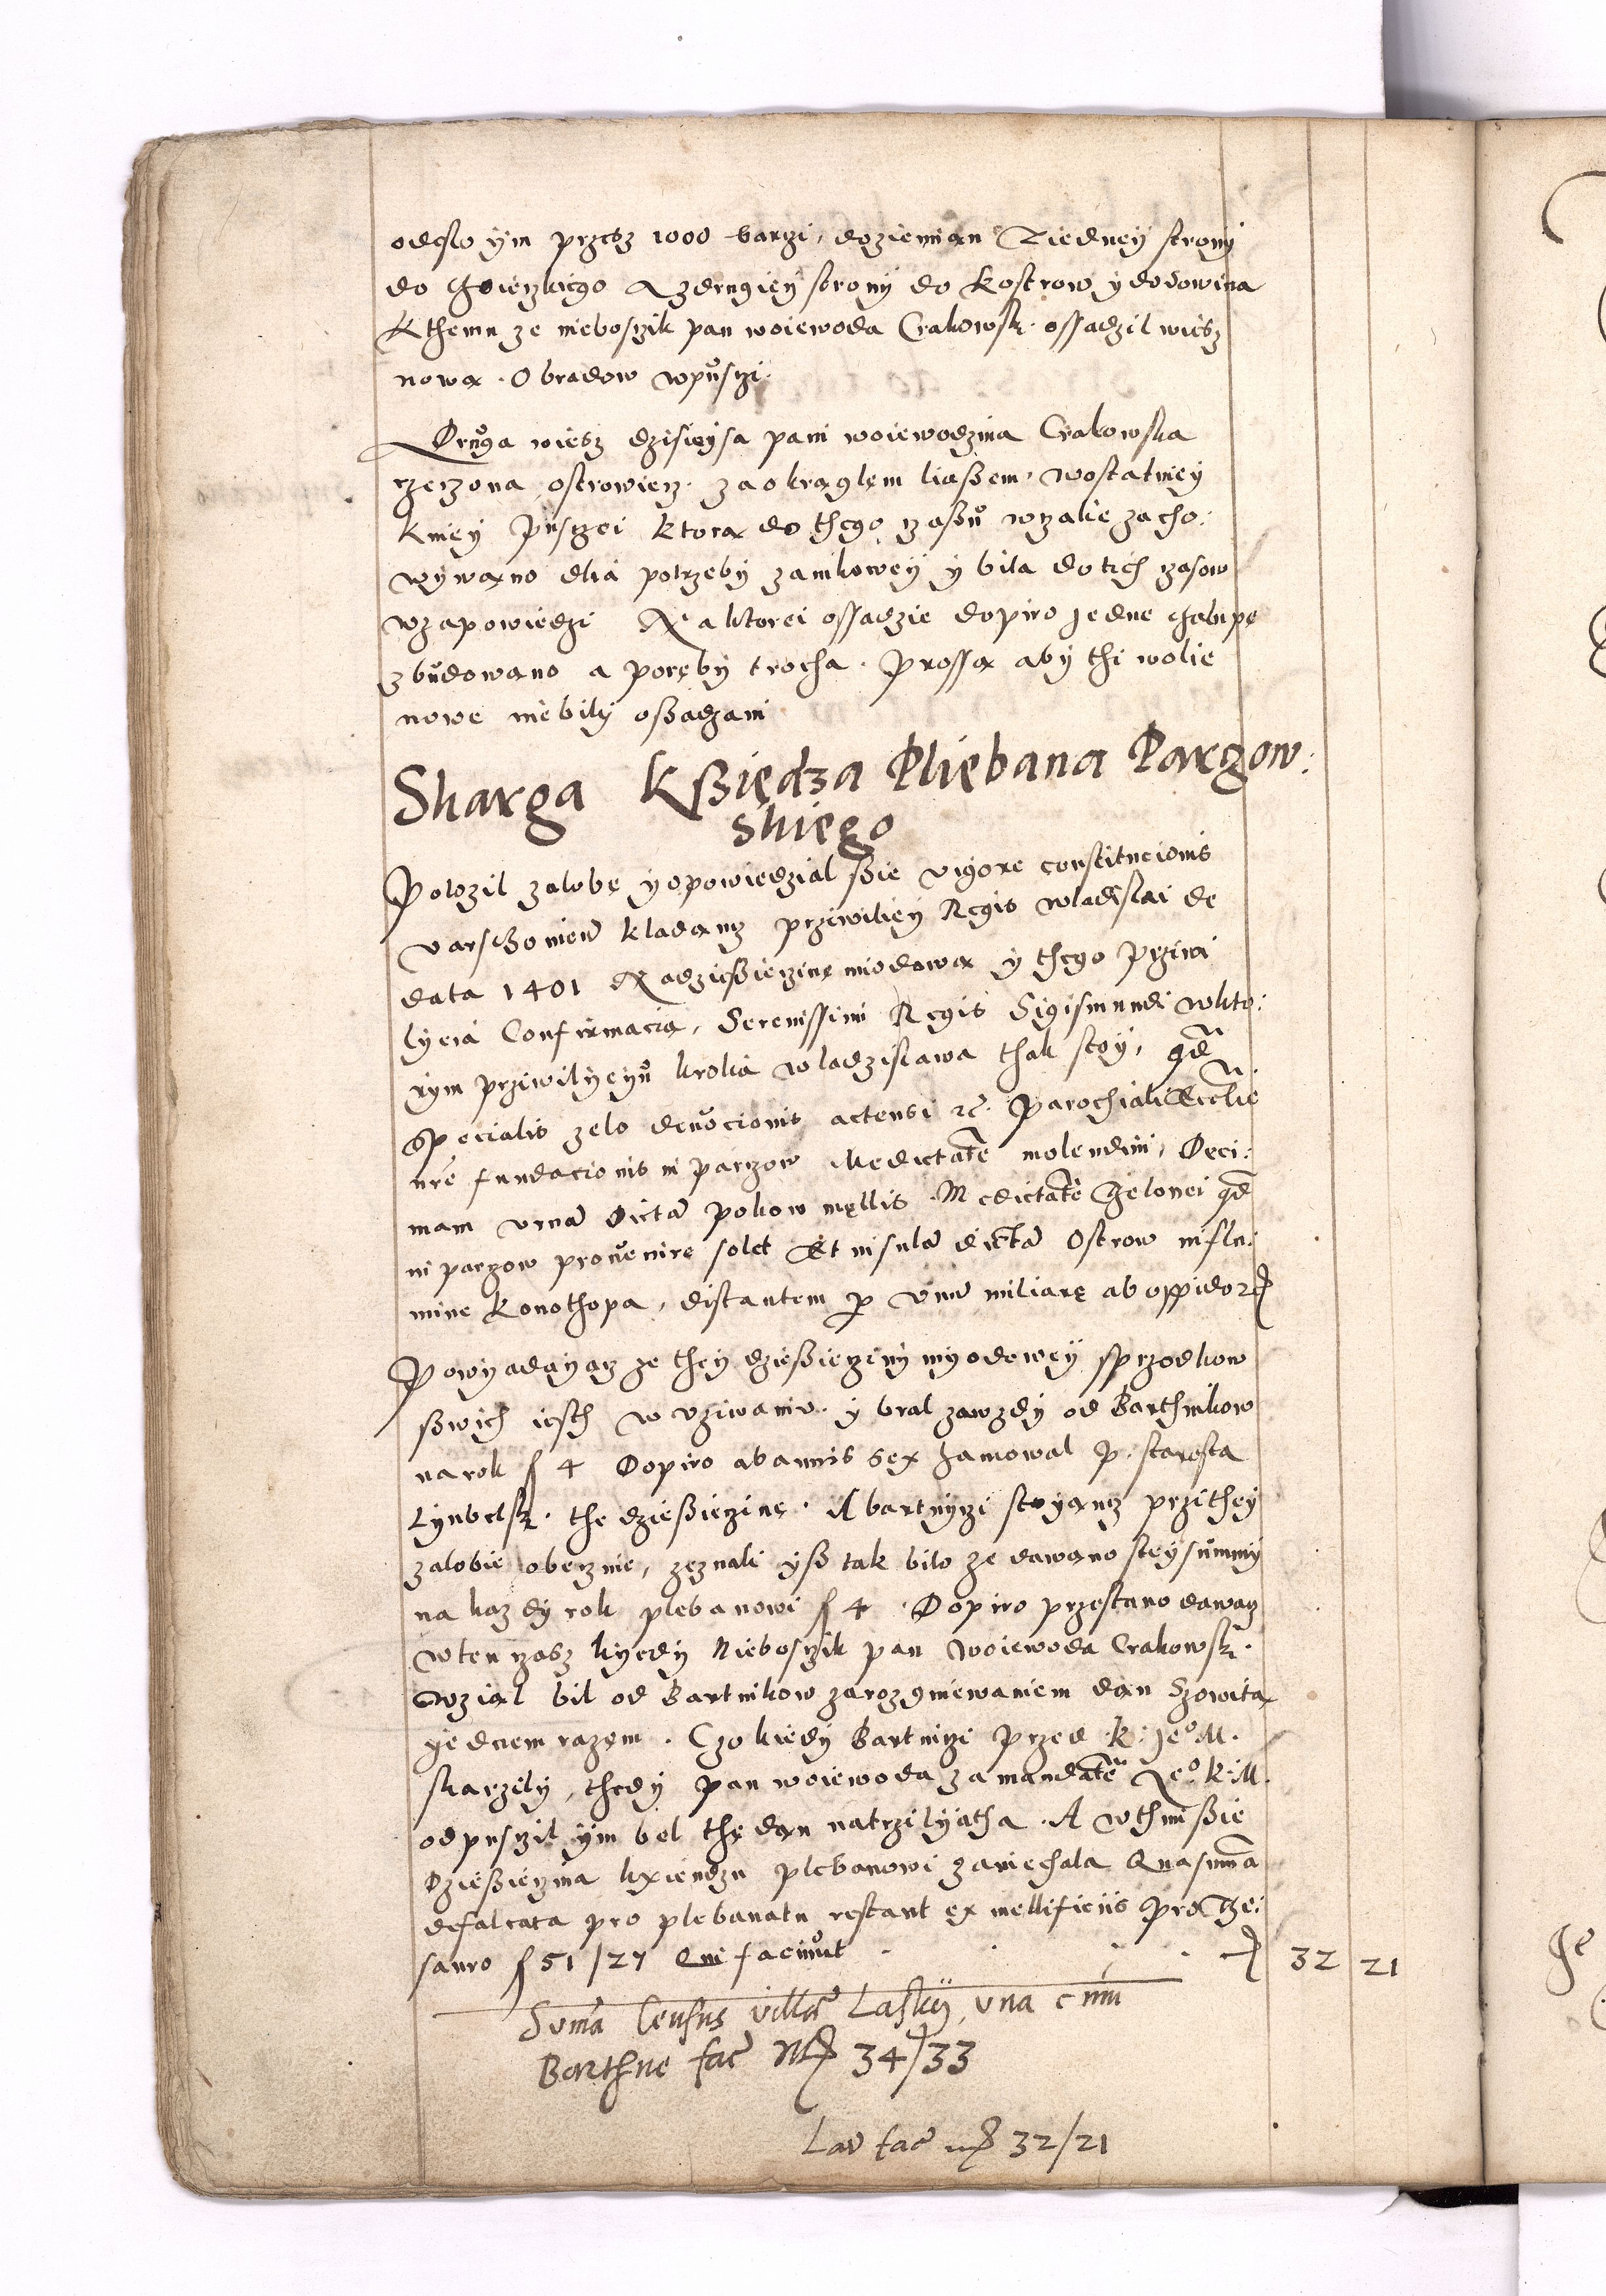 odeslo ÿm przesz 1000 barzi, doziemian Ziedneÿ stronÿ
do Goienskiego A zdrugieÿ stronÿ do Kostrow ÿ dodowina
Kthemu ze nieboszik pan woiewoda Crakowsk. ossadzil wiesz
nowa. Obradow wpusczi.
Druga wiesz dzisieysa pani woiewodzina Crakowska
rzeczona ostrowiecz. za okraglem liaßem. wostatnieÿ
knieÿ puszczei ktora do thego czaßu wczalie zacho:
wÿwano dlia potrzebÿ zamkoweÿ ÿ bila do tich czasow
wzapowiedzi Na ktorei ossadzie dopiro jedne chalupę
zbudowano a porębÿ trocha. Prossa abÿ thi wolie
nowe niebilÿ oßadzani
Skarga Kßiędza Pliebana Parczow:
skiego
Polozil zalobę ÿ opowiedzial ßie vigore constitucionis
varschoniem kladancz prziwilieÿ Regis wladislai de
data 1401 Na dzießieczine miodowa ÿ thego Prziwi
lÿeia Confirmacia, Serenissimi Regis Sigismundi wkto:
rÿm prziwilÿeÿu krolia wladzislawa thak stoÿ, qd
specialis zelo devocionis actensi etc. Parochiali Ecclie
nre fundacionis in parczow Medietate molendini, Deci:
mam vrna dicta pokow mellis. Medietate Thelonei qd
in parczow provenire solet Et insula dicta Ostrow in flu:
mine Konothopa, distantem p vnu miliare ab oppido etc
Powÿadaÿacz ze theÿ dzießiecinÿ mÿodoweÿ sprzodkow
ßwich iesth w vziwaniv. ÿ bral zawzdÿ od Barthnikow
na rok f 4 Dopiro ab annis sex hamowal p. starosta
Lÿubelsk. the dzießieczine. A bartnÿczi stoÿancz prziteÿ
zalobie obecznie, zeznali ÿß tak bilo ze dawano steÿ summÿ
na kazdÿ rok plebanowi f 4. Dopiro przestano dawacz
wten czasz kÿedÿ Nieboszik pan woiewoda Crakowsk.
wzial bil od Bartnikow zarozgniewaniem dan Szowita
ÿednem razem. Czo kiedÿ Bartniczi przed K: Jeo M.
skarzÿlÿ, thedÿ pan woiewoda za mandate Jeo K: M.
odpusczil ÿm bel the dan natrzi lÿatha. A wthim ßie
Dzießieczina kxiendzu plebanowi zaniechala Qua summa
defalcata pro plebanatu restant ex mellificiis pro The:
sauro f 51/27 Qui faciunt 32 21
Suma Census ville Laskÿ, vna cum
Barthne fac M 34/33
Lar fac M 32/21